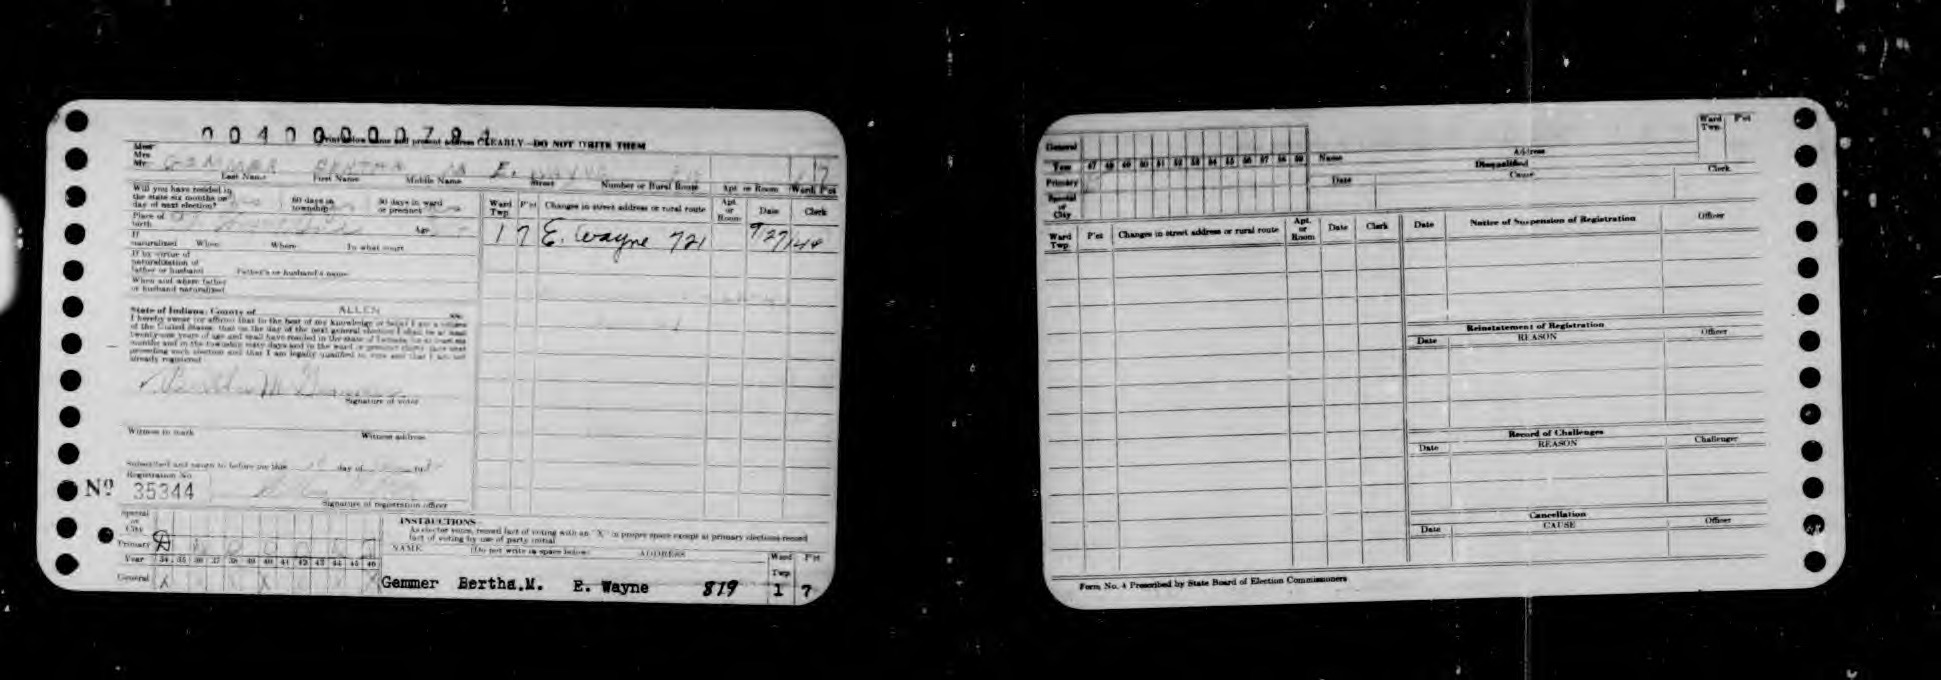 Print below name and present address CLEARLY—DO NOT WRITE THEM
Miss
Mrs.
Mr.
GEMMER BERTHA M E. WAYNE 1 7
Last Name First Name Middle Name Street Number or Rural Route Apt. or Room Ward Pct
Will you have resided in
the state six months on
day of next election?
60 days in
township
30 days in ward
or precinct
Place of
birth
Age
If
naturalized When Where In what court
If by virtue of
naturalization of
father or husband Father's or husband's name
When and where father
or husband naturalized
Ward
Twp P'ct Changes in street address or rural route Apt.
or
Room Date Clerk
1 7 E. Wayne 721 9/27/44
State of Indiana, County of ALLEN ss:
I hereby swear (or affirm) that to the best of my knowledge or belief I am a citizen
of the United States, that on the day of the next general election I shall be at least
twenty-one years of age and shall have resided in the state of Indiana for at least six
months and in the township sixty days and in the ward or precinct thirty days next
preceding such election and that I am legally qualified to vote and that I am not
already registered.
Bertha M Gemmer
Signature of voter
Witness to mark Witness address
Subscribed and sworn to before me this day of 19
Registration No.
No 35344
Signature of registration officer
Special
or
City
Primary D
Year 34 35 36 37 38 39 40 41 42 43 44 45 46
General X X X
INSTRUCTIONS—
As elector votes, record fact of voting with an "X" in proper space except at primary elections record
fact of voting by use of party initial
NAME (Do not write in space below) ADDRESS Ward
Twp P'ct
Gemmer Bertha.M. E. Wayne 819 1 7
General
Year 47 48 49 50 51 52 53 54 55 56 57 58 59
Primary
Special
or
City
Name Address Ward
Twp. P'ct
Disqualified
Date Cause Clerk
Ward
Twp P'ct Changes in street address or rural route Apt.
or
Room Date Clerk
Date Notice of Suspension of Registration Officer
Reinstatement of Registration
Date REASON Officer
Record of Challenges
Date REASON Challenger
Cancellation
Date CAUSE Officer
Form No. 4 Prescribed by State Board of Election Commissioners